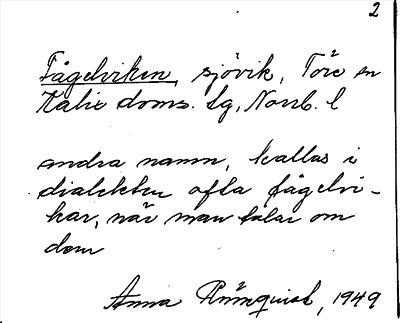 2
Fågelviken, sjövik, Töre sn
Kalix doms. lg, Norrb. l
andra namn, kallas i
dialekten ofta fågelvi-
kar, när man talar om
dem
Anna Rönnquist, 1949